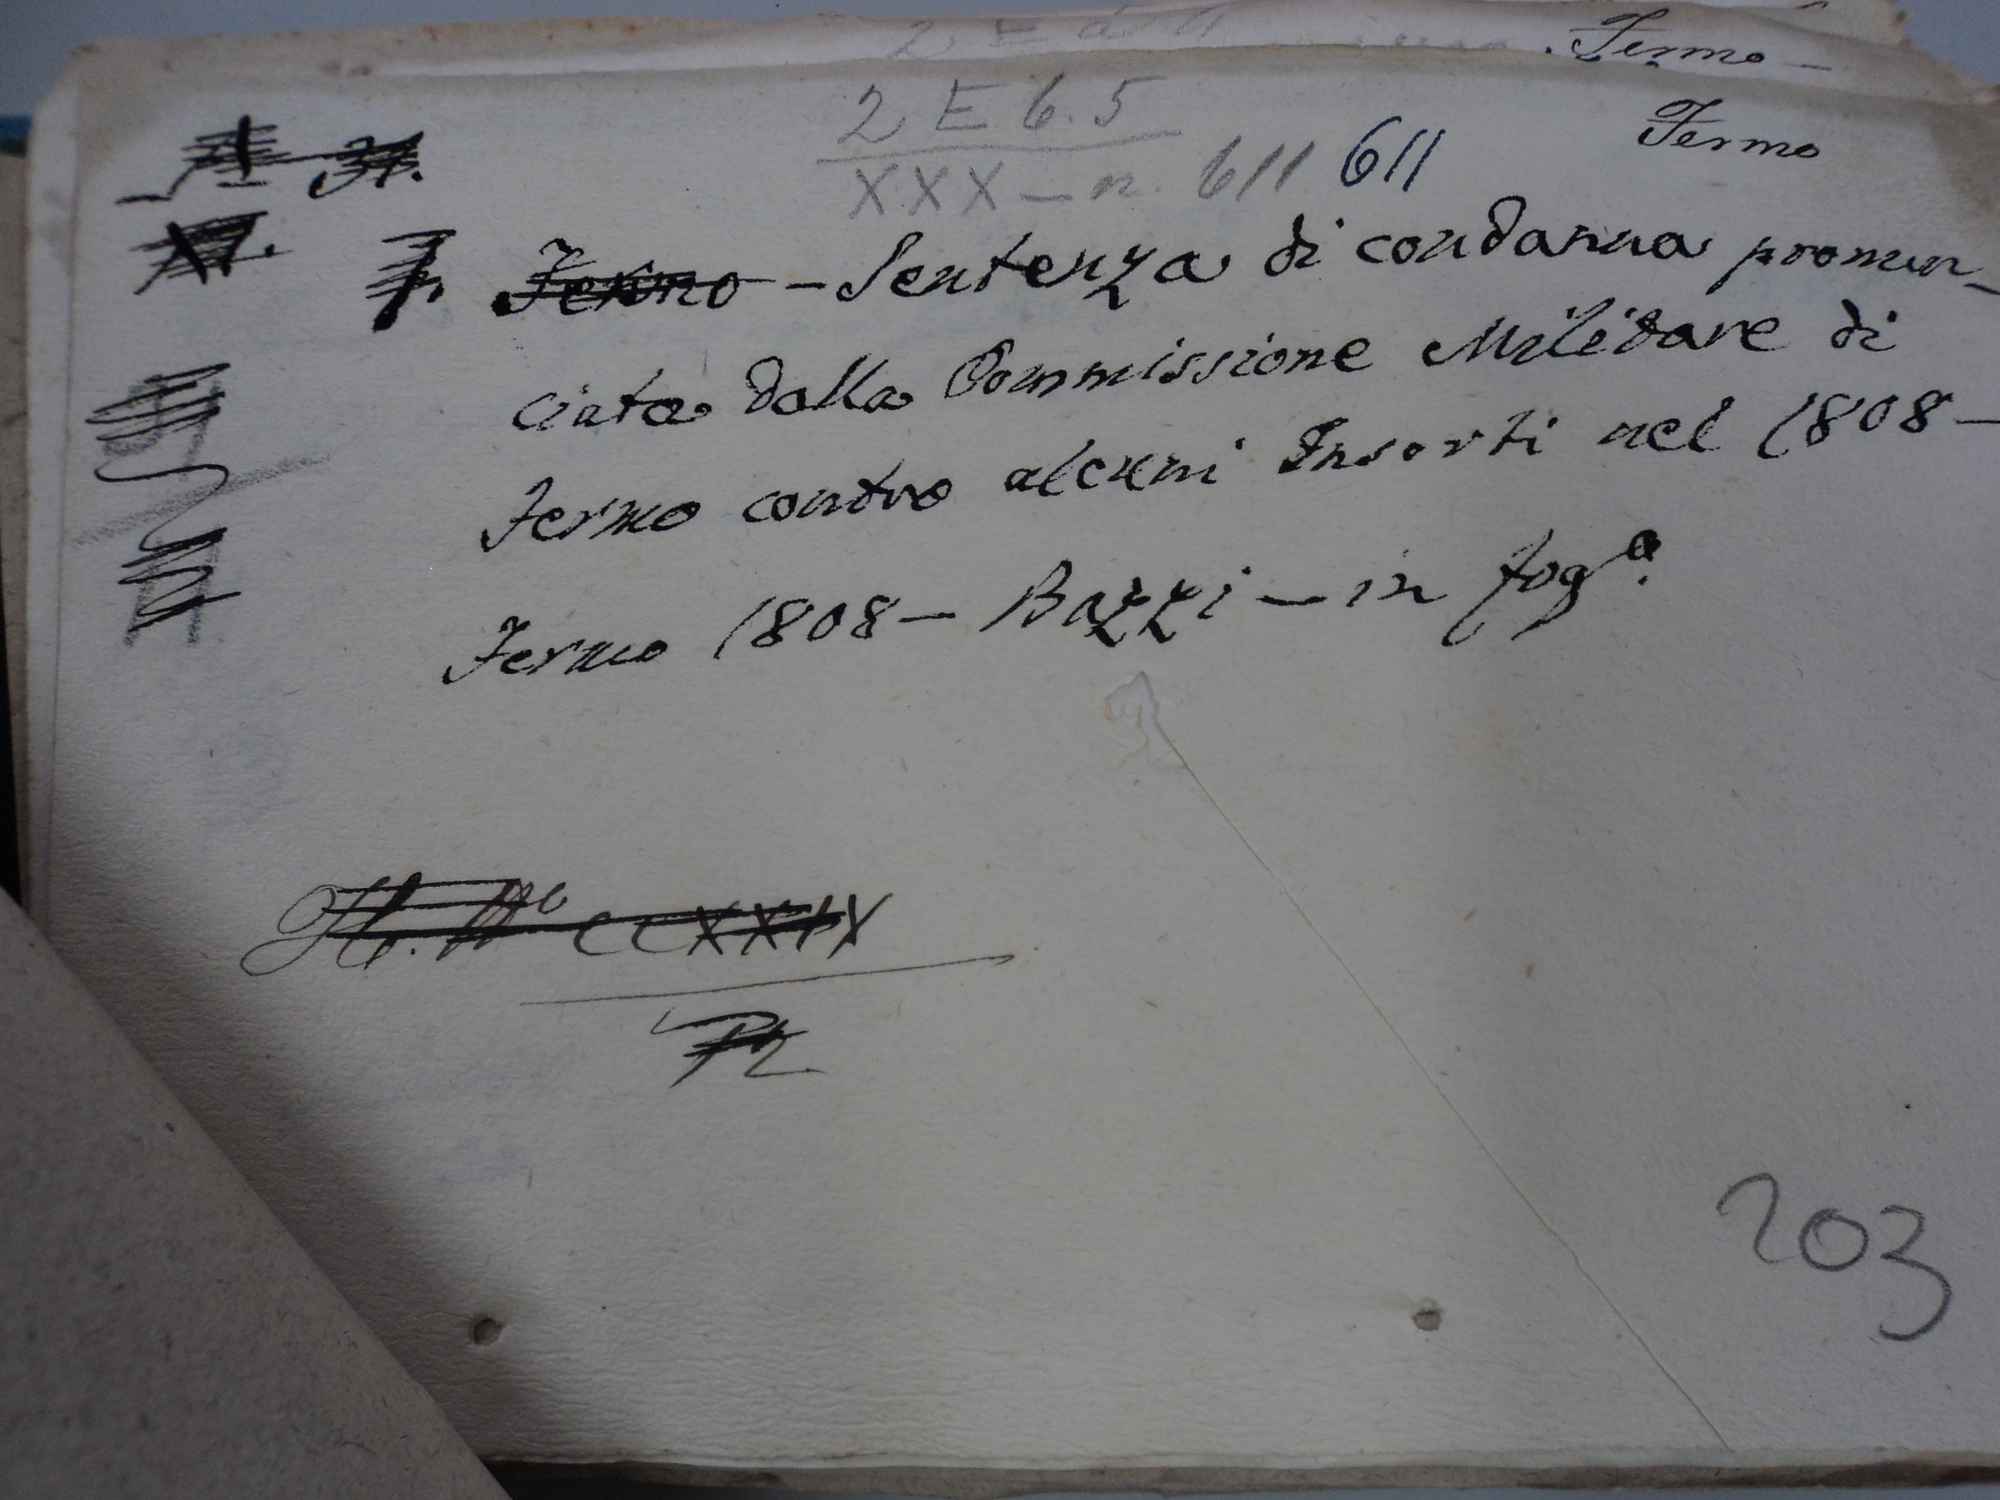 Fermo -
2 E 6.5
Fermo
XXX - n. 611 611
31.
Fermo - Sentenza di condanna pronun-
ciata dalla Commissione Militare di
Fermo contro alcuni Insorti nel 1808 -
Fermo 1808 - Bazzi - in fog.º
CCXXIX
203